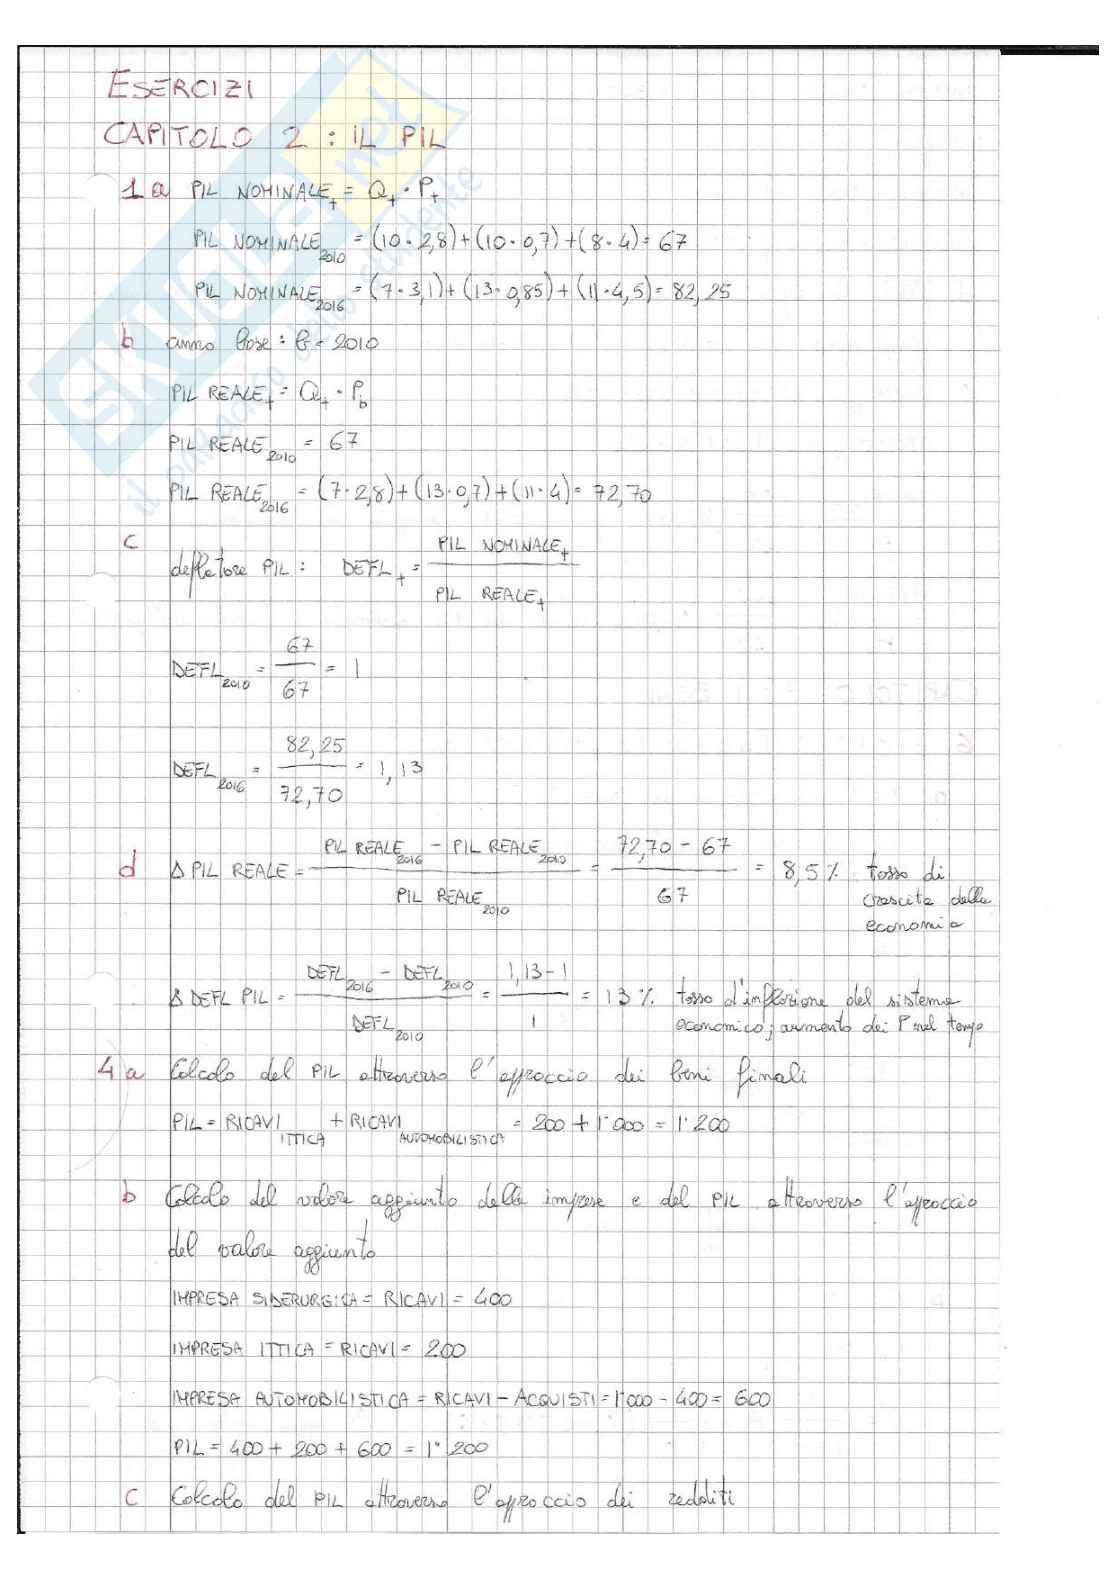 ESERCIZI
CAPITOLO 2 : IL PIL
1 a PIL NOMINALE_t = Q_t · P_t
PIL NOMINALE_2010 = (10 · 2,8) + (10 · 0,7) + (8 · 4) = 67
PIL NOMINALE_2016 = (7 · 3,1) + (13 · 0,85) + (11 · 4,5) = 82,25
b anno base : b = 2010
PIL REALE_t = Q_t · P_b
PIL REALE_2010 = 67
PIL REALE_2016 = (7 · 2,8) + (13 · 0,7) + (11 · 4) = 72,70
c
deflatore PIL : DEFL_t = PIL NOMINALE_t / PIL REALE_t
DEFL_2010 = 67 / 67 = 1
DEFL_2016 = 82,25 / 72,70 = 1,13
d Δ PIL REALE = PIL REALE_2016 - PIL REALE_2010 / PIL REALE_2010 = 72,70 - 67 / 67 = 8,5 % tasso di
crescita della
economia
Δ DEFL PIL = DEFL_2016 - DEFL_2010 / DEFL_2010 = 1,13 - 1 / 1 = 13 % tasso d'inflazione del sistema
economico; aumento dei P nel tempo
4 a Calcolo del PIL attraverso l'approccio dei beni finali
PIL = RICAVI_ITTICA + RICAVI_AUTOMOBILISTICA = 200 + 1'000 = 1'200
b Calcolo del valore aggiunto delle imprese e del PIL attraverso l'approccio
del valore aggiunto
IMPRESA SIDERURGICA = RICAVI = 400
IMPRESA ITTICA = RICAVI = 200
IMPRESA AUTOMOBILISTICA = RICAVI - ACQUISTI = 1'000 - 400 = 600
PIL = 400 + 200 + 600 = 1'200
c Calcolo del PIL attraverso l'approccio dei redditi
SKUOLA.net